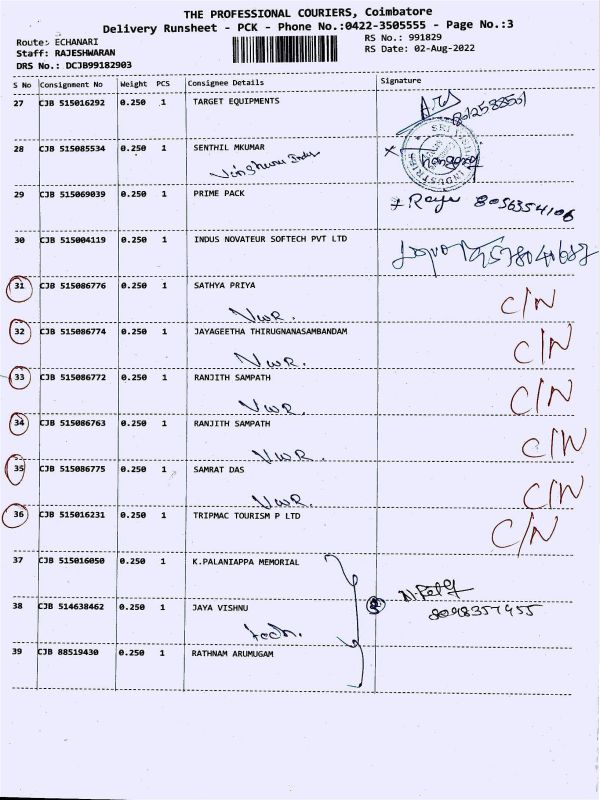 THE PROFESSIONAL COURIERS, Coimbatore
Delivery Runsheet - PCK - Phone No.:0422-3505555 - Page No.:3
Route: ECHANARI
RS No.: 991829
Staff: RAJESHWARAN
RS Date: 02-Aug-2022
DRS No.: DCJB99182903
S No Consignment No Weight PCS Consignee Details Signature
27 CJB 515016292 0.250 1 TARGET EQUIPMENTS
28 CJB 515085534 0.250 1 SENTHIL MKUMAR
29 CJB 515069039 0.250 1 PRIME PACK
8056354106
30 CJB 515004119 0.250 1 INDUS NOVATEUR SOFTECH PVT LTD
31 CJB 515086776 0.250 1 SATHYA PRIYA
C/N
32 CJB 515086774 0.250 1 JAYAGEETHA THIRUGNANASAMBANDAM
C/N
33 CJB 515086772 0.250 1 RANJITH SAMPATH
C/N
34 CJB 515086763 0.250 1 RANJITH SAMPATH
C/N
35 CJB 515086775 0.250 1 SAMRAT DAS
C/N
36 CJB 515016231 0.250 1 TRIPMAC TOURISM P LTD
C/N
37 CJB 515016050 0.250 1 K.PALANIAPPA MEMORIAL
38 CJB 514638462 0.250 1 JAYA VISHNU
8098357455
39 CJB 88519430 0.250 1 RATHNAM ARUMUGAM